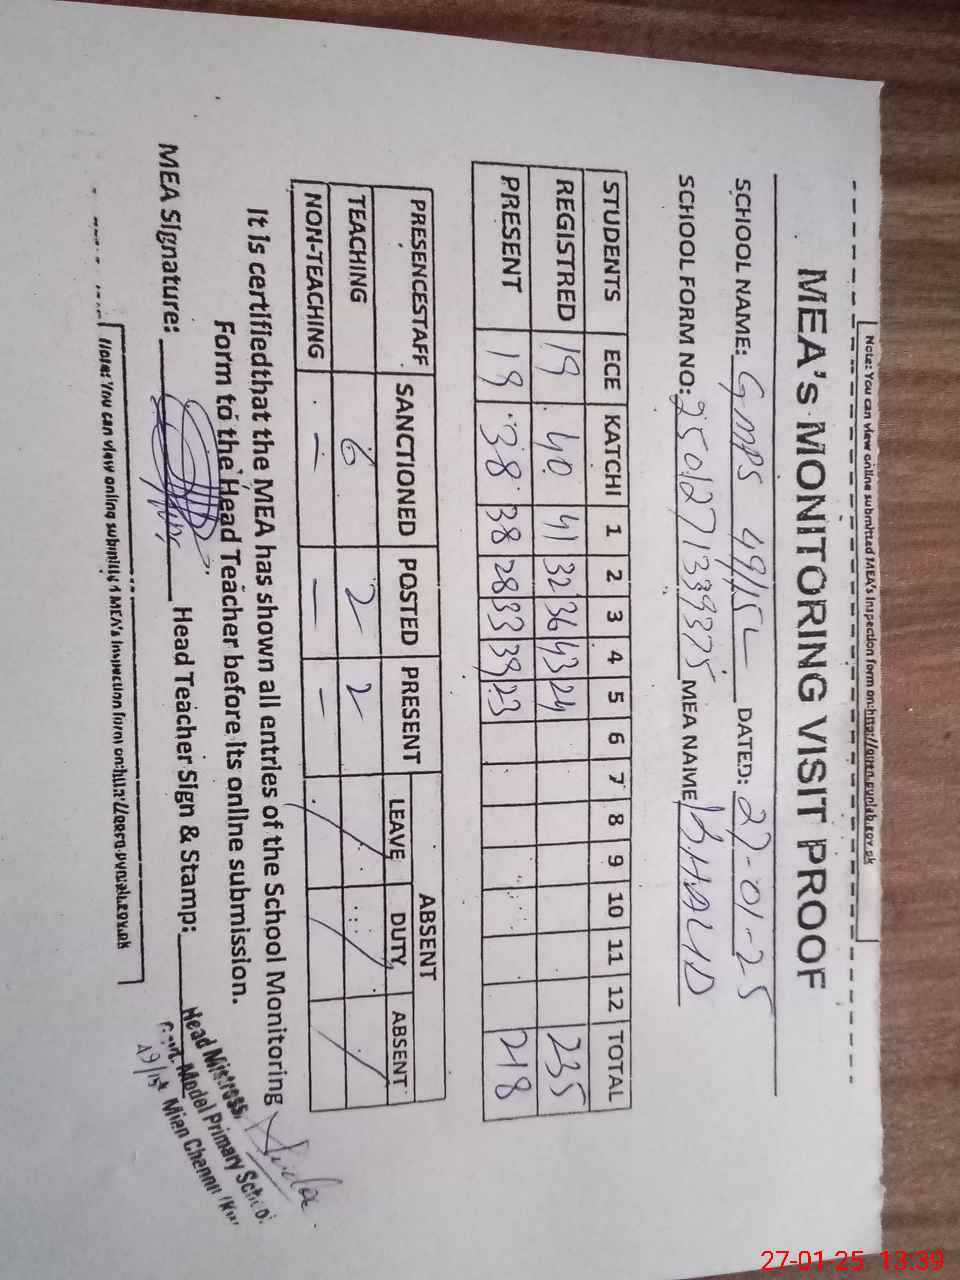 Note: You can view online submitted MEA's inspection form on:http://qaen.punjab.gov.pk
MEA's MONITORING VISIT PROOF
SCHOOL NAME: GMPS 49/15-L DATED: 27-01-25
SCHOOL FORM NO: 2501271339375 MEA NAME KHALID
STUDENTS ECE KATCHI 1 2 3 4 5 6 7 8 9 10 11 12 TOTAL
REGISTRED 19 40 41 32 36 43 24 235
PRESENT 19 38 38 28 33 39 23 218
PRESENCESTAFF SANCTIONED POSTED PRESENT ABSENT
LEAVE DUTY ABSENT
TEACHING 6 2 2
NON-TEACHING - - -
It is certifiedthat the MEA has shown all entries of the School Monitoring
Form to the Head Teacher before its online submission.
MEA Signature: Head Teacher Sign & Stamp:
Head Mistress,
Govt. Model Primary School
49/15L Mian Channu
Note: You can view online submitted MEA's Inspection form on:http://
27-01-25 13:39